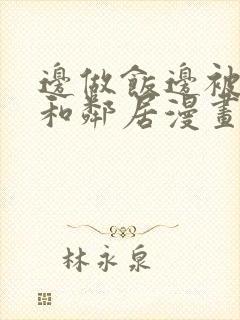 邊做飯邊被
和鄰居漫畫
林永泉